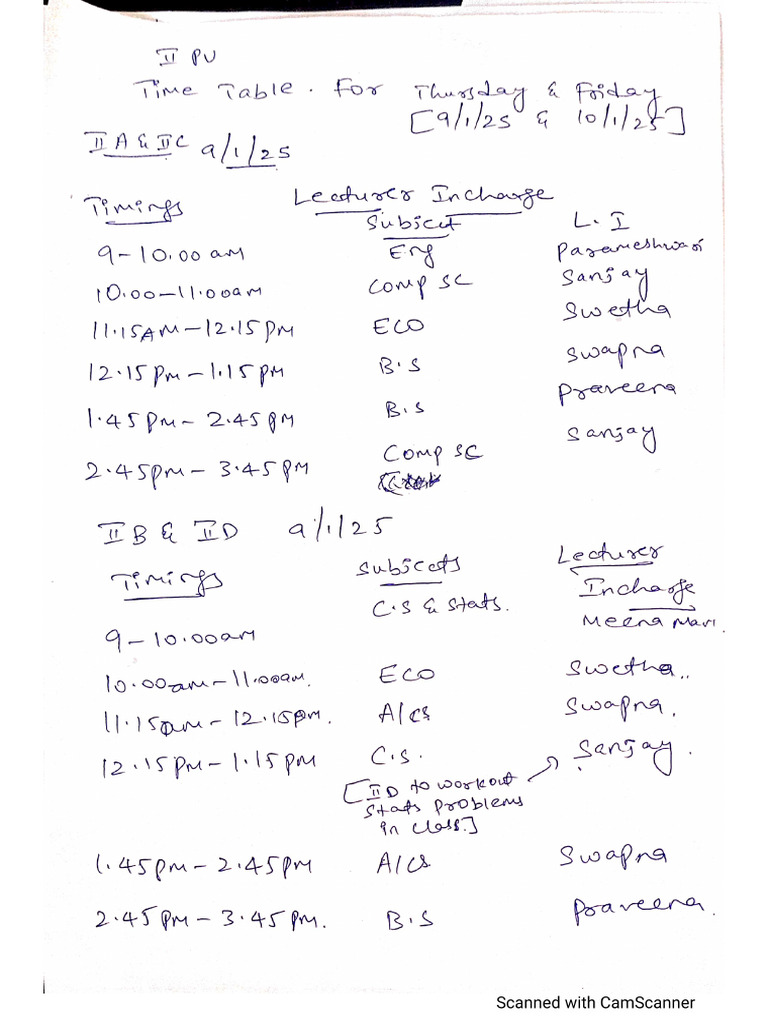 II PU
Time Table. For Thursday & Friday
[9/1/25 & 10/1/25]
II A & II C 9/1/25
Timings Lecturer Incharge
Subject L. I
9-10.00 am Eng Parameshwari
10.00-11.00am Comp SC Sanjay
11.15AM-12.15PM ECO Swetha
12.15PM-1.15PM B.S Swapna
1.45PM-2.45PM B.S Praveena
2.45PM-3.45PM Comp SC Sanjay
II B & II D 9/1/25
Timings Subjects Lecturer
Incharge
9-10.00am C.S & Stats. Meena Mari.
10.00am-11.00am. ECO Swetha..
11.15am-12.15pm. A/Cs Swapna.
12.15PM-1.15PM C.S. Sanjay.
[II D to workout
Stats problems
in class.]
1.45PM-2.45PM A/Cs Swapna
2.45PM-3.45PM. B.S Praveena.
Scanned with CamScanner